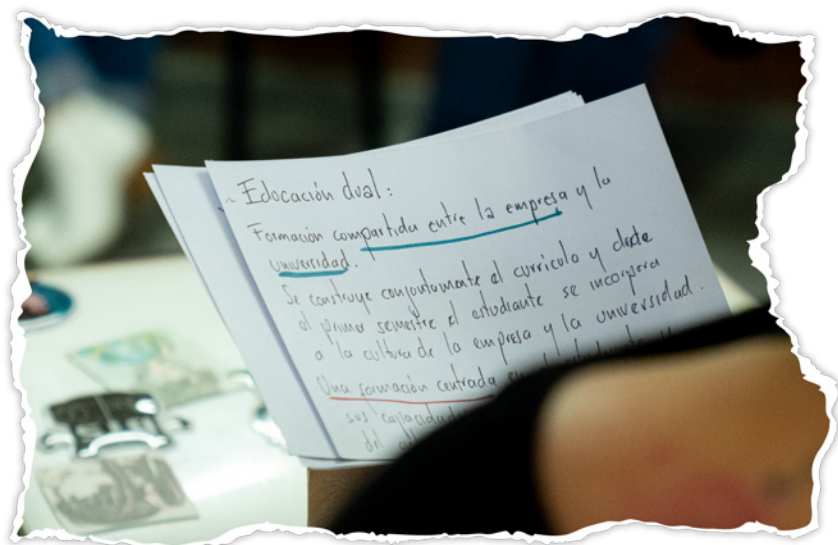 ~ Educación dual:
Formación compartida entre la empresa y la
universidad.
Se construye conjuntamente el currículo y desde
el primer semestre el estudiante se incorpora
a la cultura de la empresa y la universidad.
Una formación centrada
sus capacidades
del